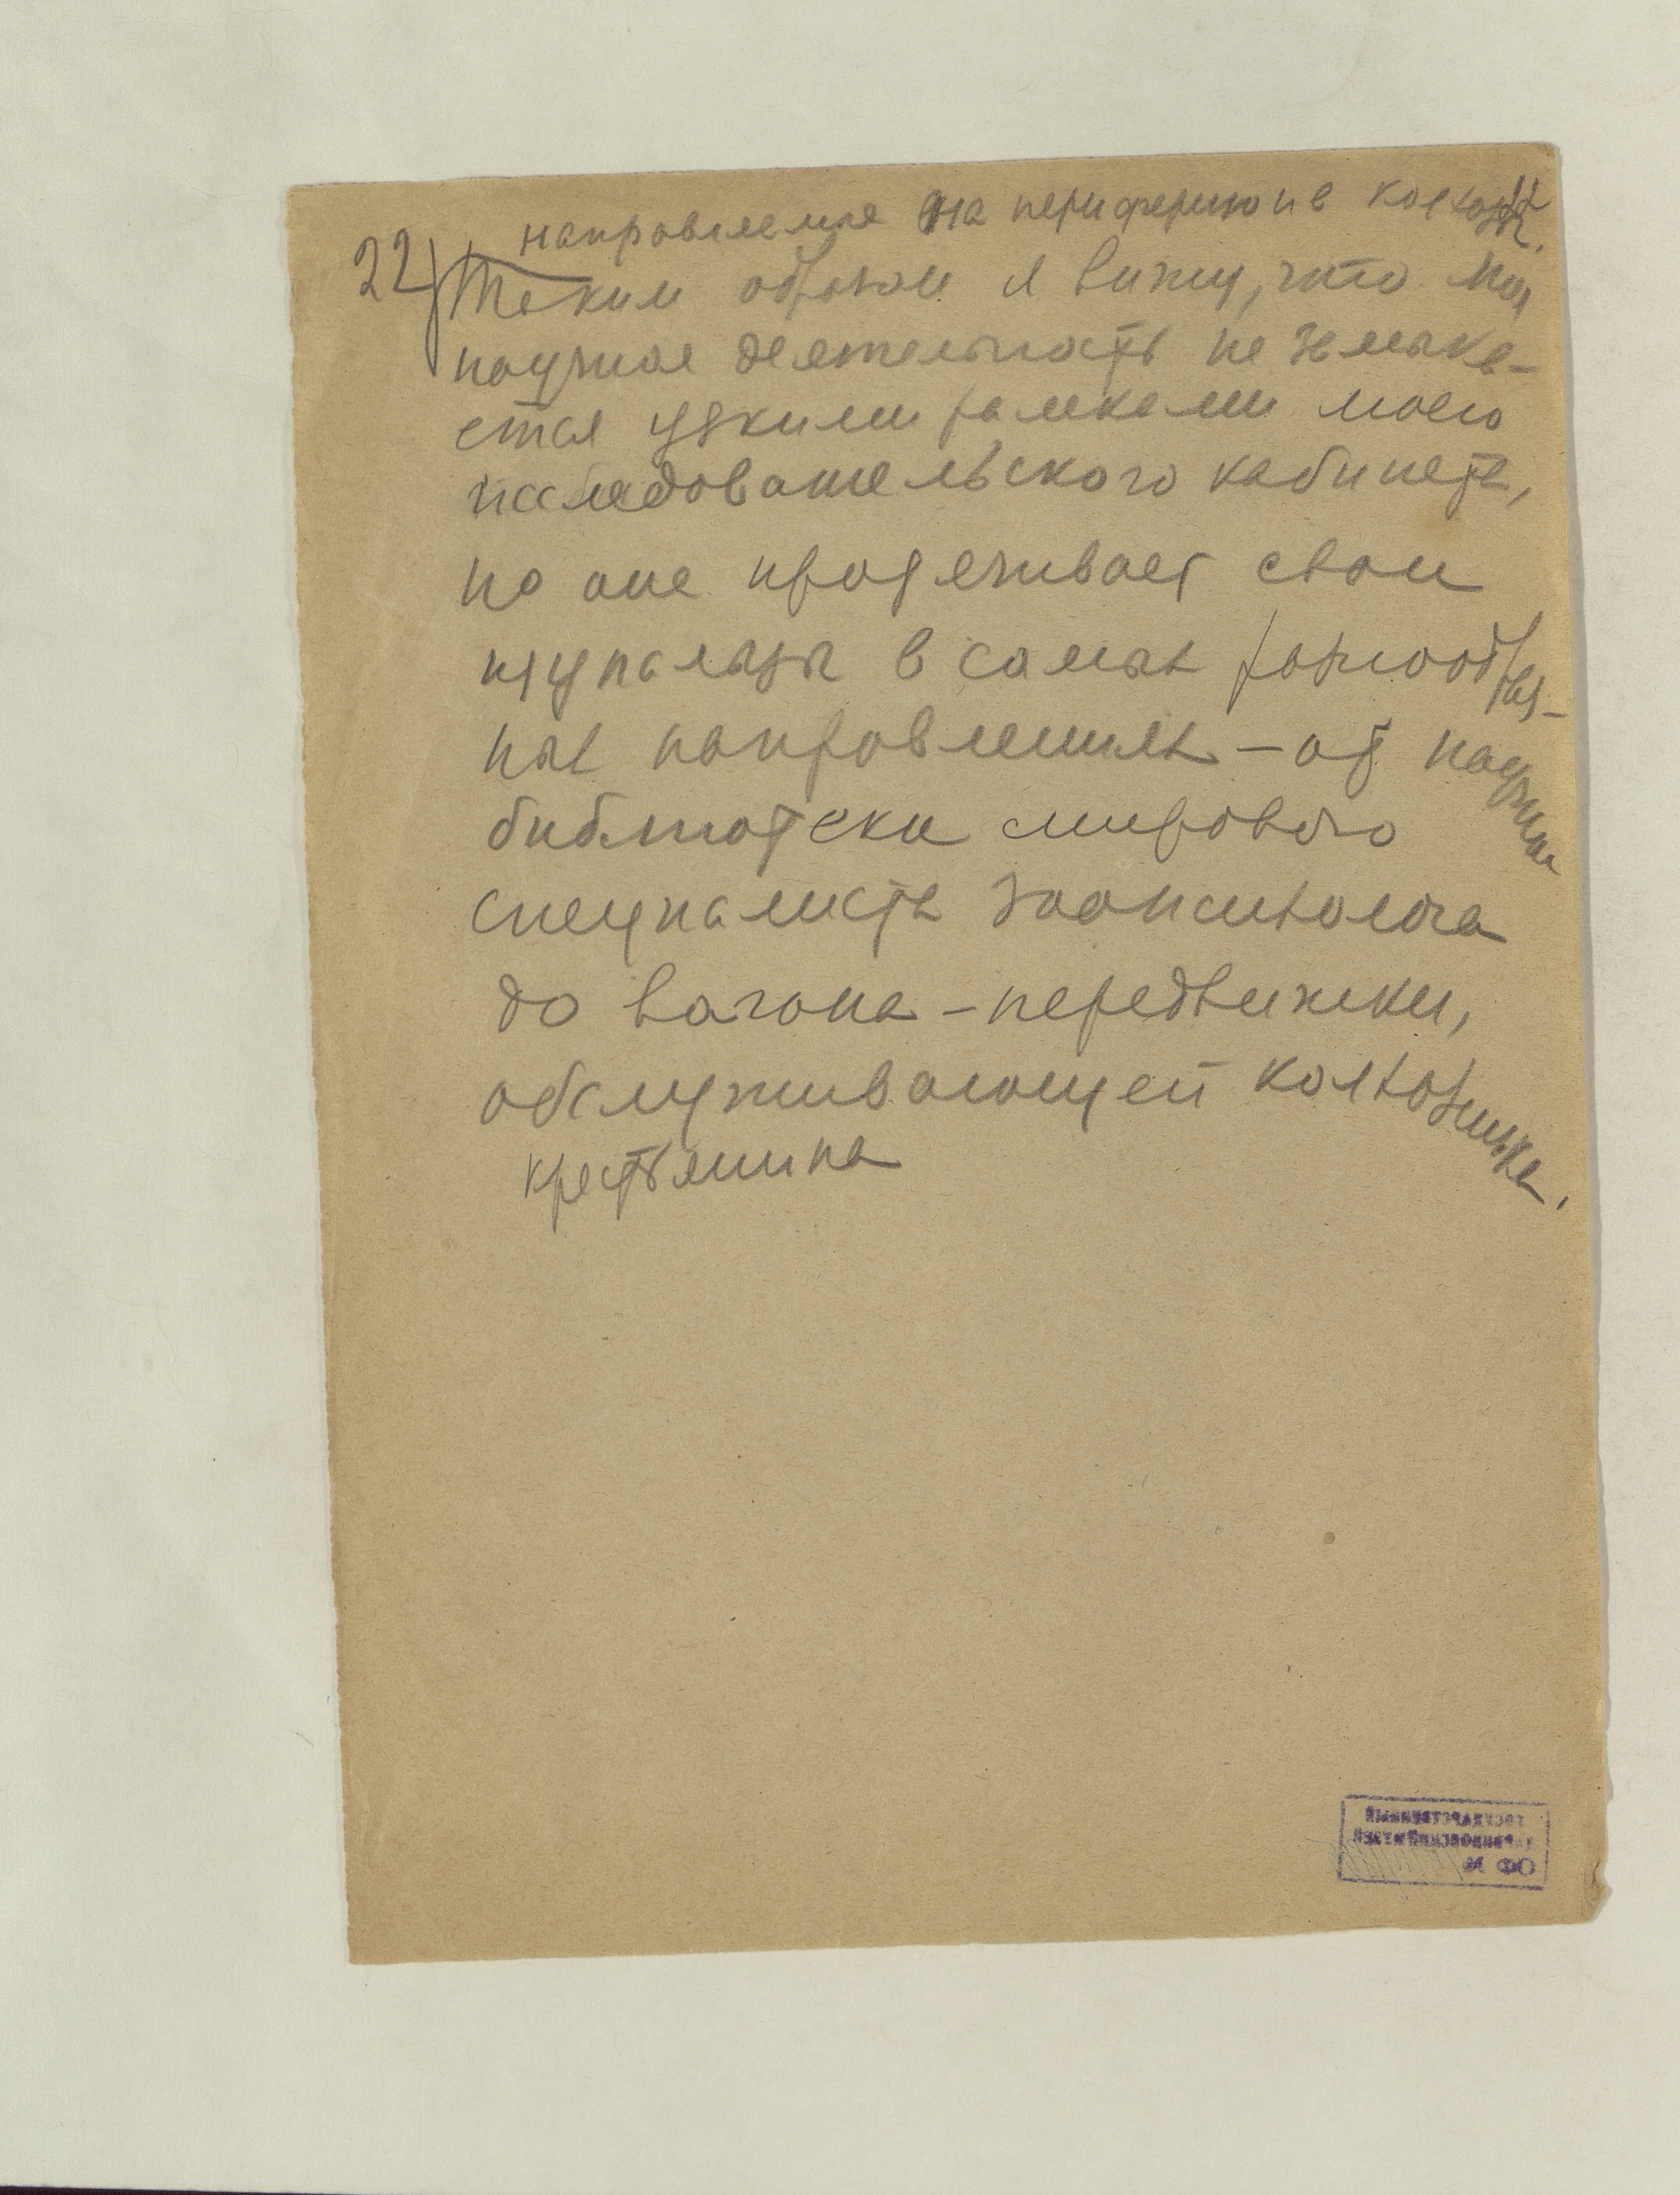 направляемая на периферию и в колхозы.
22) Таким образом я вижу, что моя
научная деятельность не замыка-
ется узкими рамками моего
исследовательского кабинета,
но она протягивает свои
щупальцы в самых разнообраз-
ных направлениях – от научной
библиотеки мирового
специалиста зоопсихолога
до вагона-передвижки,
обслуживающей колхозника,
крестьянина
ГОСУДАРСТВЕННЫЙ
ДАРВИНОВСКИЙ МУЗЕЙ
ОФ №